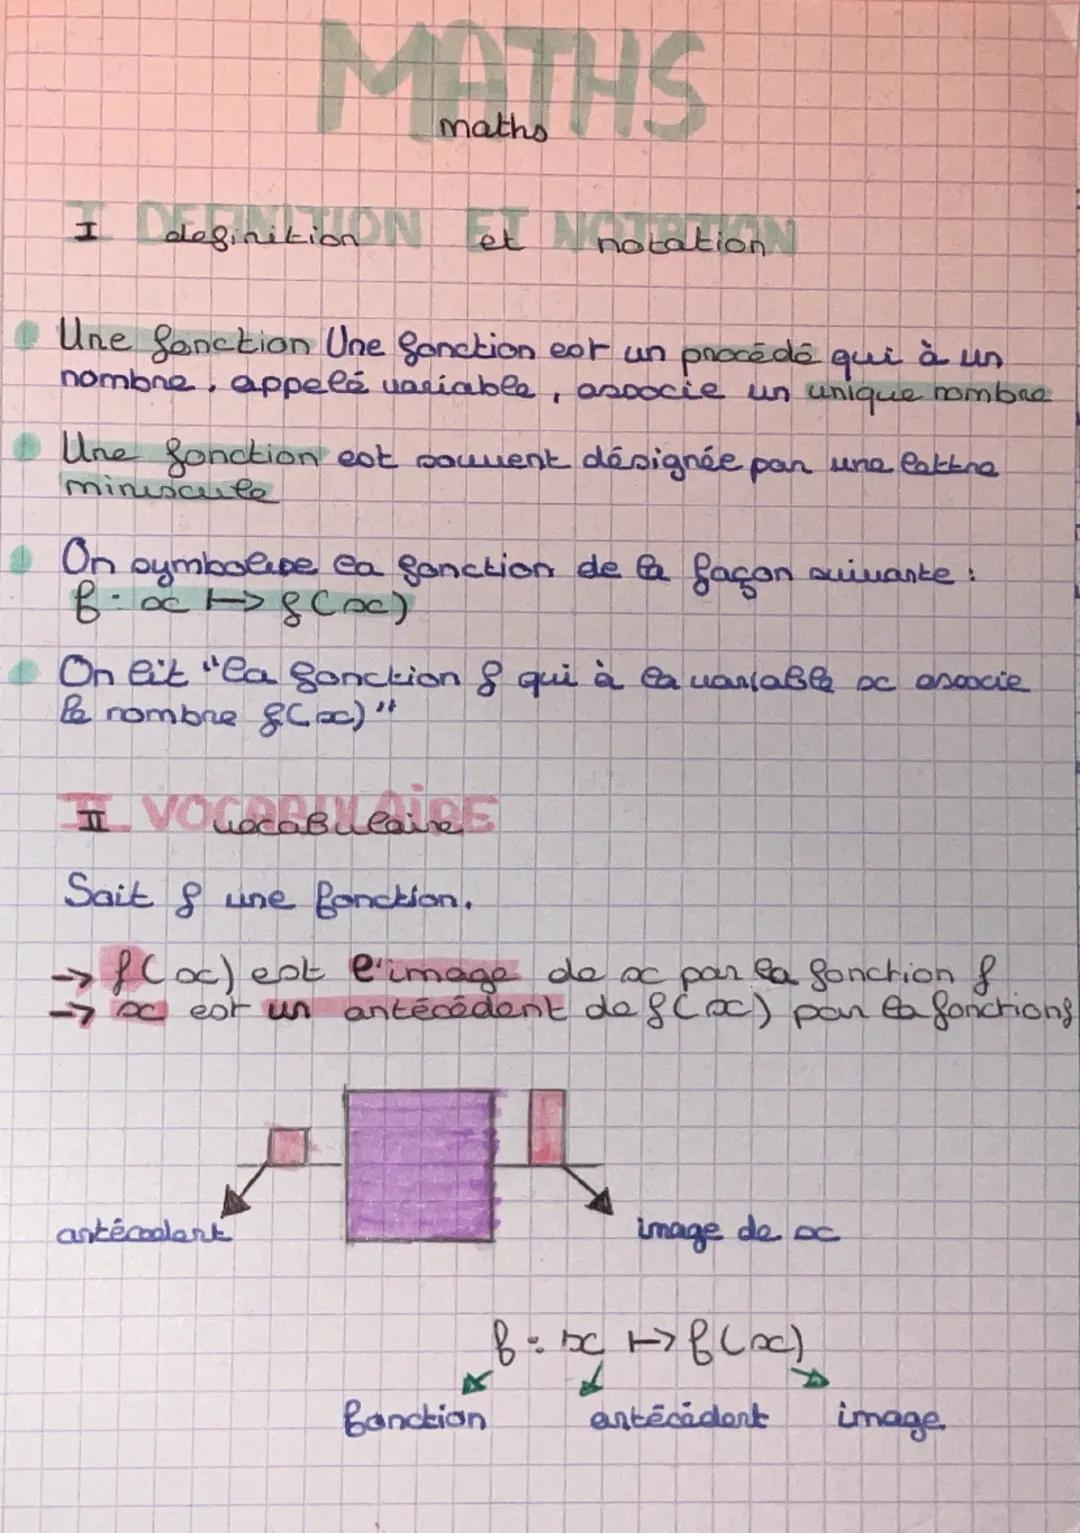 MATHS
maths
I DEFINITION ET NOTATION
I definition et notation
Une fonction Une fonction est un procédé qui à un
nombre, appelé variable, associe un unique nombre
Une fonction est souvent désignée par une lettre
minuscule
On symbolise la fonction de la façon suivante :
f : x ↦ f(x)
On lit "la fonction f qui à la variable x associe
le nombre f(x)"
II VOCABULAIRE
II vocabulaire
Soit f une fonction.
→ f(x) est l'image de x par la fonction f
→ x est un antécédent de f(x) par la fonction f
antécedent
image de x
f : x ↦ f(x)
fonction antécédent image